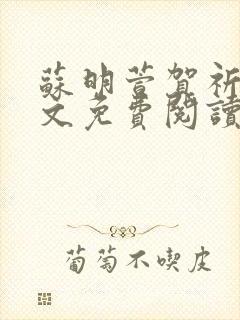 蘇明萱賀祈
文免費閱讀
葡萄不喫皮